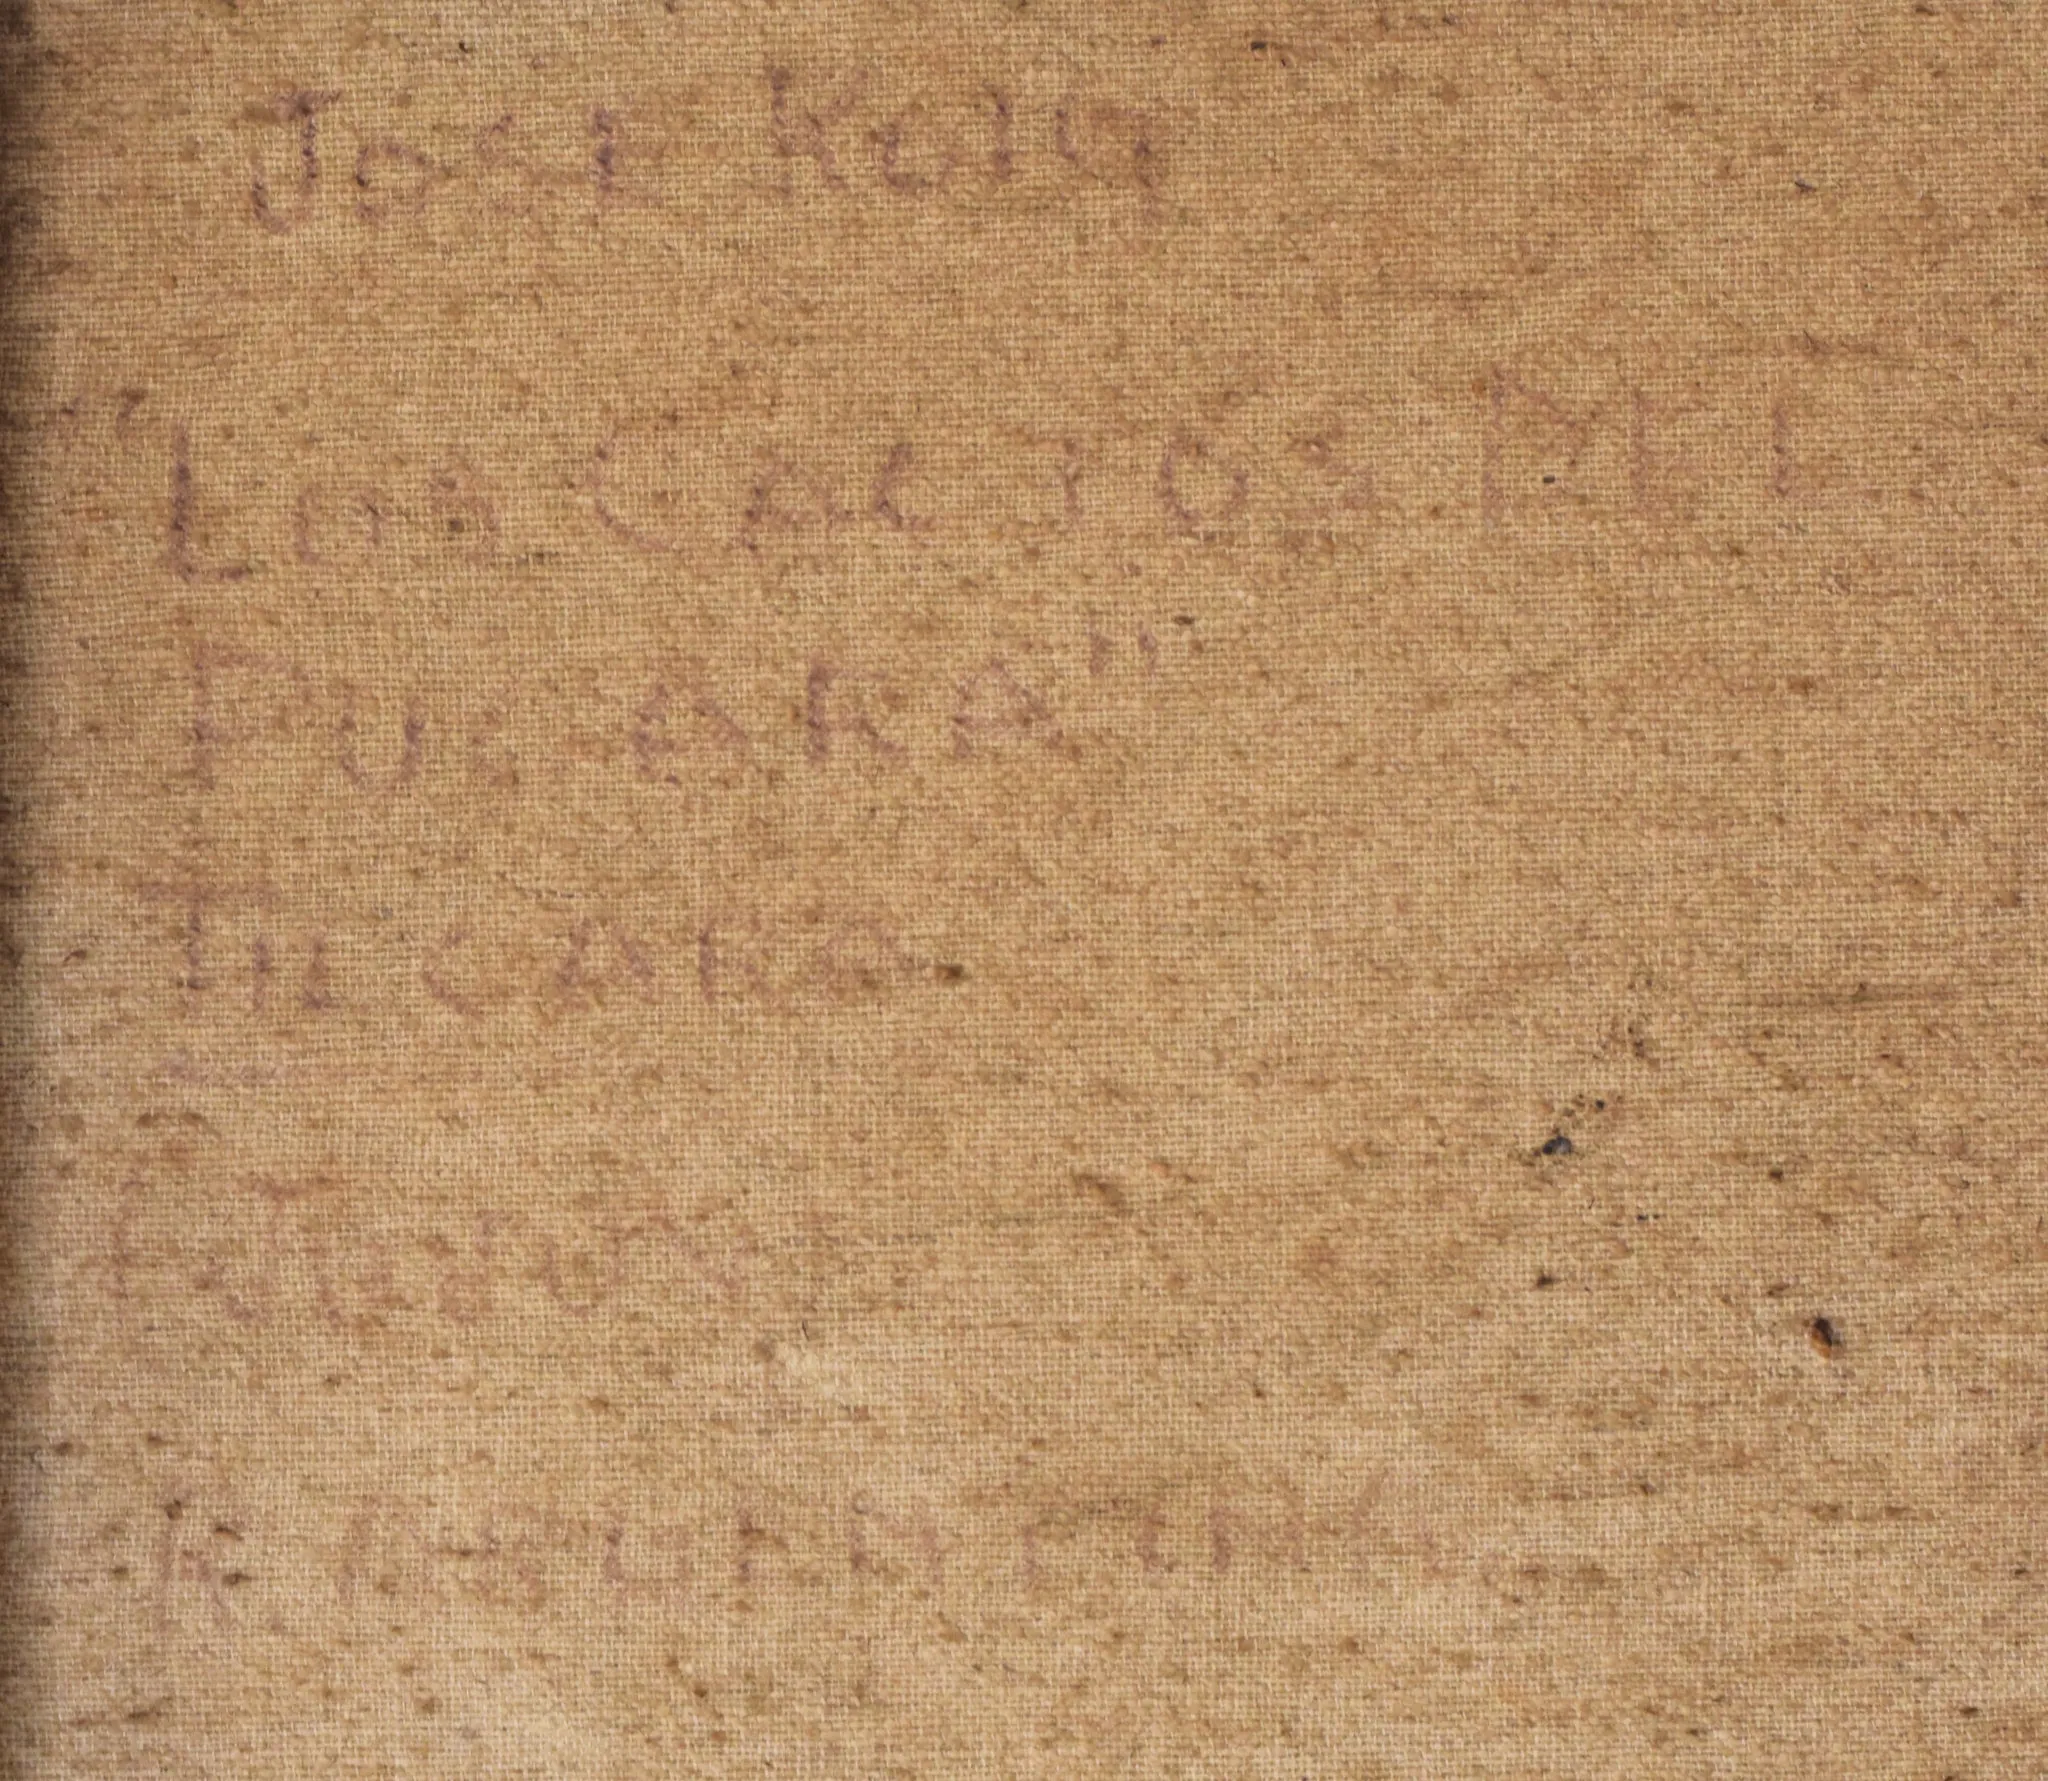 JOSE ROIG
"LOS CACTOS DEL
PUCARA"
TILCARA
JUJUY
R ARGENTINA